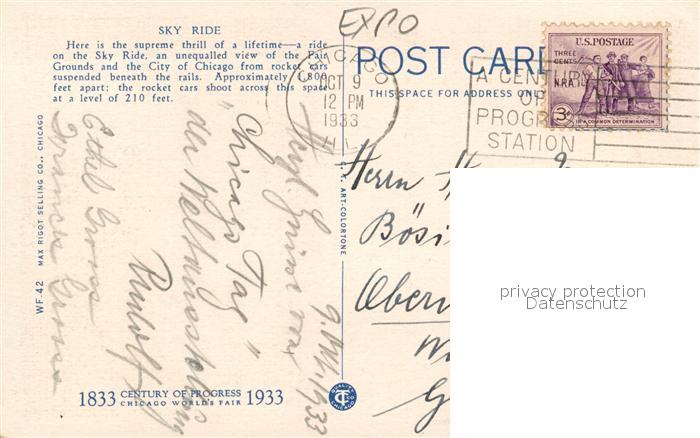 EXPO
SKY RIDE
Here is the supreme thrill of a lifetime—a ride
on the Sky Ride, an unequalled view of the Fair
Grounds and the City of Chicago from rocket cars
suspended beneath the rails. Approximately 1,800
feet apart; the rocket cars shoot across this space
at a level of 210 feet.
POST CARD
THIS SPACE FOR ADDRESS ONLY
CHICAGO
OCT 9
12 PM
1933
ILL
A CENTURY
OF
PROGRESS
STATION
U.S. POSTAGE
THREE
CENTS
N.R.A.
3¢
IN A COMMON DETERMINATION
9. Okt. 1933
Herzl. Grüsse vom
"Chicago Tag"
der Weltausstellung
Rudolf
Ethel Gross
Frances Gross
Herrn
Bösi
Obern
WF-42 MAX RIGOT SELLING CO., CHICAGO
C. T. ART-COLORTONE
1833 CENTURY OF PROGRESS 1933
CHICAGO WORLD'S FAIR
QUALITY
CTC
CHICAGO
privacy protection
Datenschutz